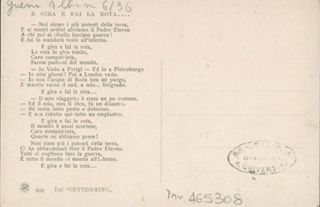 E GIRA E FAI LA ROTA....
— Noi siamo i più potenti della terra,
E ai nostri ordini abbiamo il Padre Eterno
A chi può si ribella facciam guerra!
E lui lo manderà tosto all'inferno.
E gira e fai la rota,
La rota in giro tendo,
Caro compatriota,
Sarem padroni del mondo.
— Io Vado a Parigi — Ed io a Pietroburgo
— Io otto giorni! Poi a Londra vado.
— Io con l'acqua di Boda ben mi purgo,
E marcio verso il sud, a mio... Belgrado.
E gira e fai la rota...
— Il mio viaggio, è stato un po costoso.
— Ed il mio, non ti dico, fu un disastro.
— Mi sento tutto pesto e doloroso.
— E son ridotto qui tutto un empiastro.
E gira e fai la rota,
Il mondo è assai scortese,
Caro compatriota,
Quante ne abbiamo prese!
Non siam più i potenti della terra,
Ci ha abbandonati fino il Padre Eterno.
Tutti ci vogliono fare la guerra,
E tutto il mondo ci manda all'inferno.
E gira e fai la rota...
Dal "CENTESIMINO„
Inv 465308